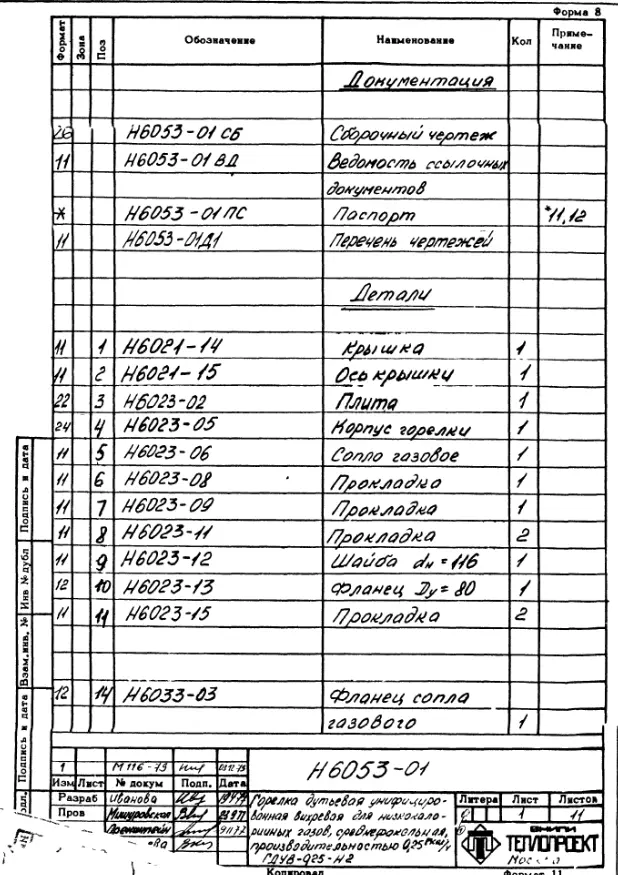 Форма 8
Формат Зона Поз Обозначение Наименование Кол Приме-
чание
Документация
26 Н6053-01 СБ Сборочный чертеж
11 Н6053-01 ВД Ведомость ссылочных
документов
* Н6053-01 ПС Паспорт *11,12
11 Н6053-01Д1 Перечень чертежей
Детали
11 1 Н6021-14 Крышка 1
11 2 Н6021-15 Ось крышки 1
22 3 Н6023-02 Плита 1
24 4 Н6023-05 Корпус горелки 1
11 5 Н6023-06 Сопло газовое 1
11 6 Н6023-08 Прокладка 1
11 7 Н6023-09 Прокладка 1
11 8 Н6023-11 Прокладка 2
11 9 Н6023-12 Шайба dн=116 1
12 10 Н6023-13 Фланец Dу=80 1
11 11 Н6023-15 Прокладка 2
12 14 Н6033-03 Фланец сопла
газового 1
Подпись и дата
Инв № дубл
Взам.инв. №
Подпись и дата
подл.
1 М116-79
Изм Лист № докум Подп. Дата
Н6053-01
Разраб Иванова
Пров
Горелка дутьевая унифициро-
ванная вихревая для низкокало-
рийных газов, среднерасходная,
производительностью 0,25
ГДУВ-025-Н2
Литера Лист Листов
1 11
ВНИПИ
ТЕПЛОПРОЕКТ
Москва
Копировал Формат 11